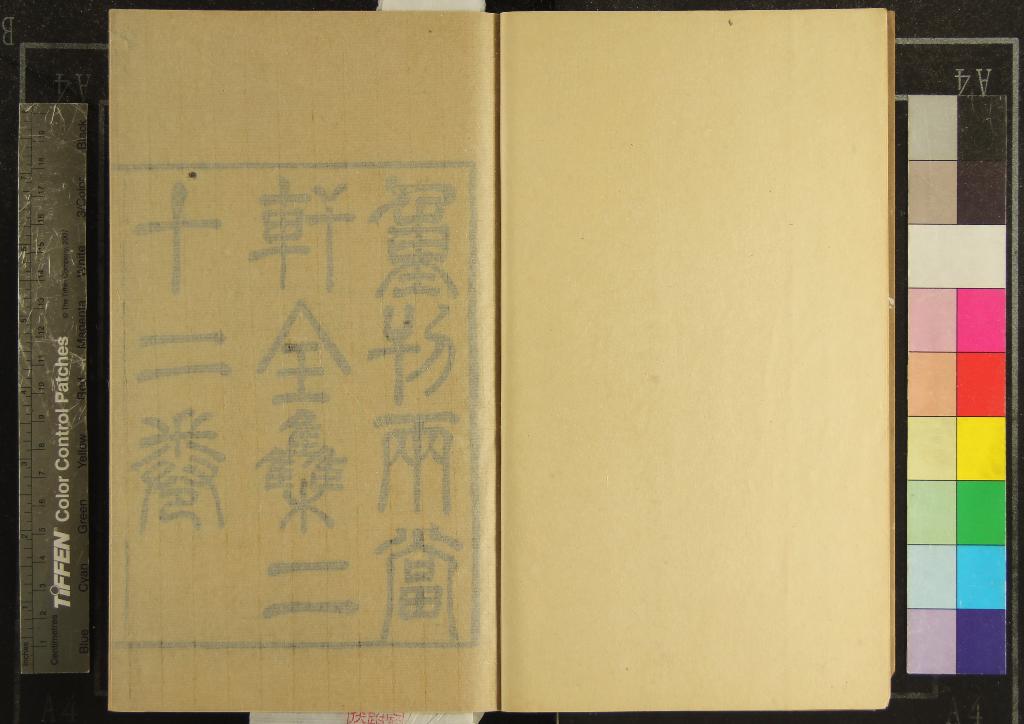 重刊兩當
軒全集二
十二卷
TIFFEN Color Control Patches
© The Tiffen Company, 2007
Centimetres
Inches
Blue
Cyan
Green
Yellow
Red
Magenta
White
3/Color
Black
A4
A4
A4
A4
B